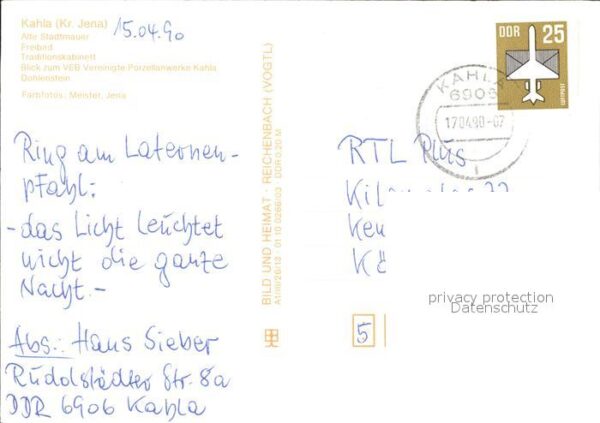 Kahla (Kr. Jena)
Alte Stadtmauer
Freibad
Traditionskabinett
Blick zum VEB Vereinigte Porzellanwerke Kahla
Dohlenstein
Farbfotos: Meister, Jena
15.04.90
Ring am Laternen-
pfahl:
-das Licht leuchtet
nicht die ganze
Nacht.-
Abs.: Hans Sieber
Rudolstädter Str. 8a
DDR 6906 Kahla
BILD UND HEIMAT · REICHENBACH (VOGTL)
01 10 0266/03 DDR 0,20 M
DDR 25
LUFTPOST
KAHLA
6906
17.04.90-07
1
RTL Plus
privacy protection
Datenschutz
5